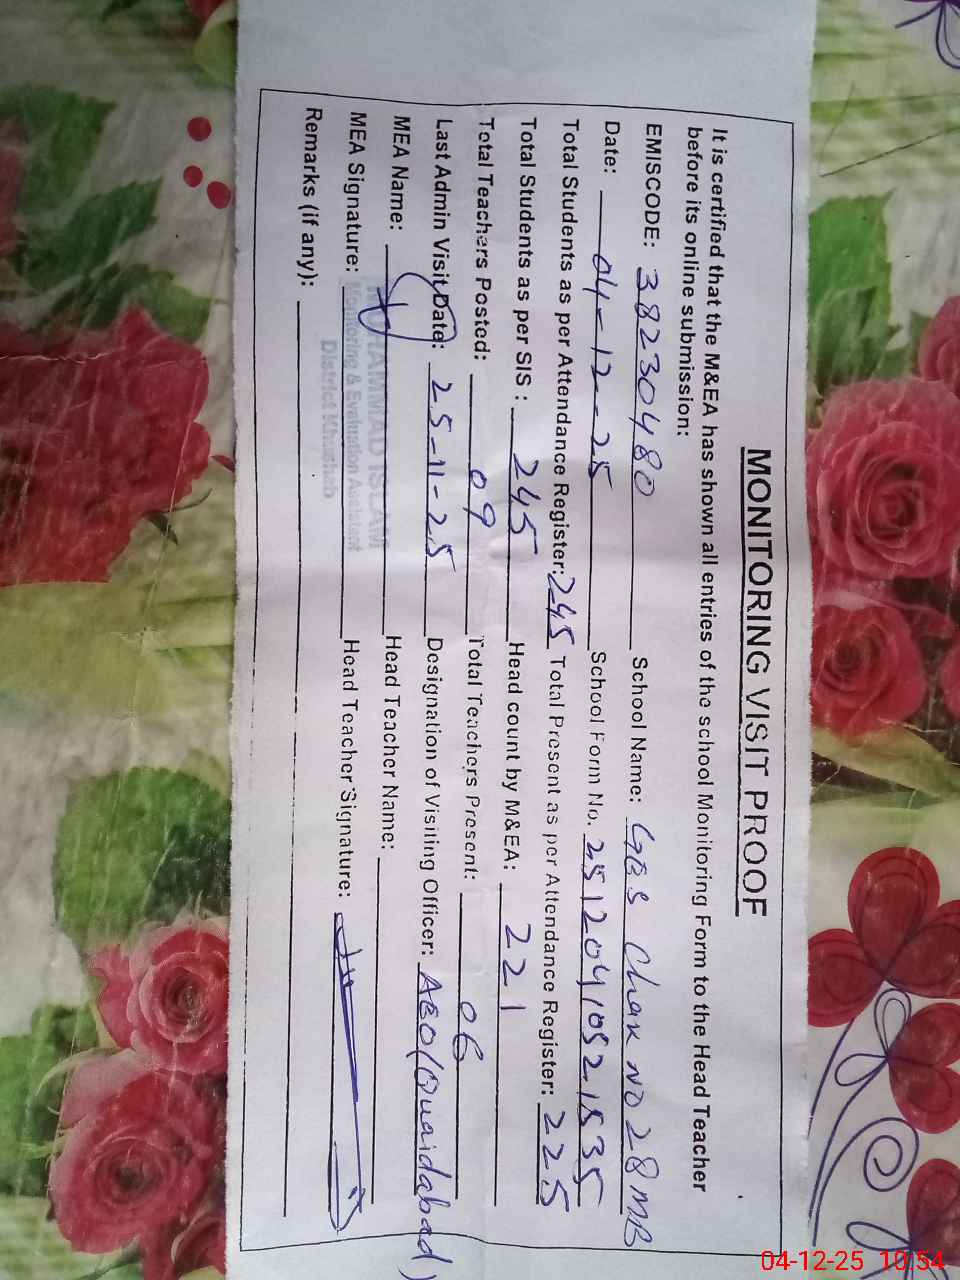 MONITORING VISIT PROOF
It is certified that the M&EA has shown all entries of the school Monitoring Form to the Head Teacher
before its online submission:
EMISCODE: 38230480 School Name: GES Chak no 28 MB
Date: 04-12-25 School Form No. 25120410521535
Total Students as per Attendance Register: 245 Total Present as per Attendance Register: 225
Total Students as per SIS : 245 Head count by M&EA: 221
Total Teachers Posted: 09 Total Teachers Present: 06
Last Admin Visit Date: 25-11-25 Designation of Visiting Officer: AEO (Quaidabad)
MEA Name: Head Teacher Name:
MUHAMMAD ISLAM
MEA Signature: Head Teacher Signature:
Monitoring & Evaluation Assistant
District Khushab
Remarks (if any):
04-12-25 10:54